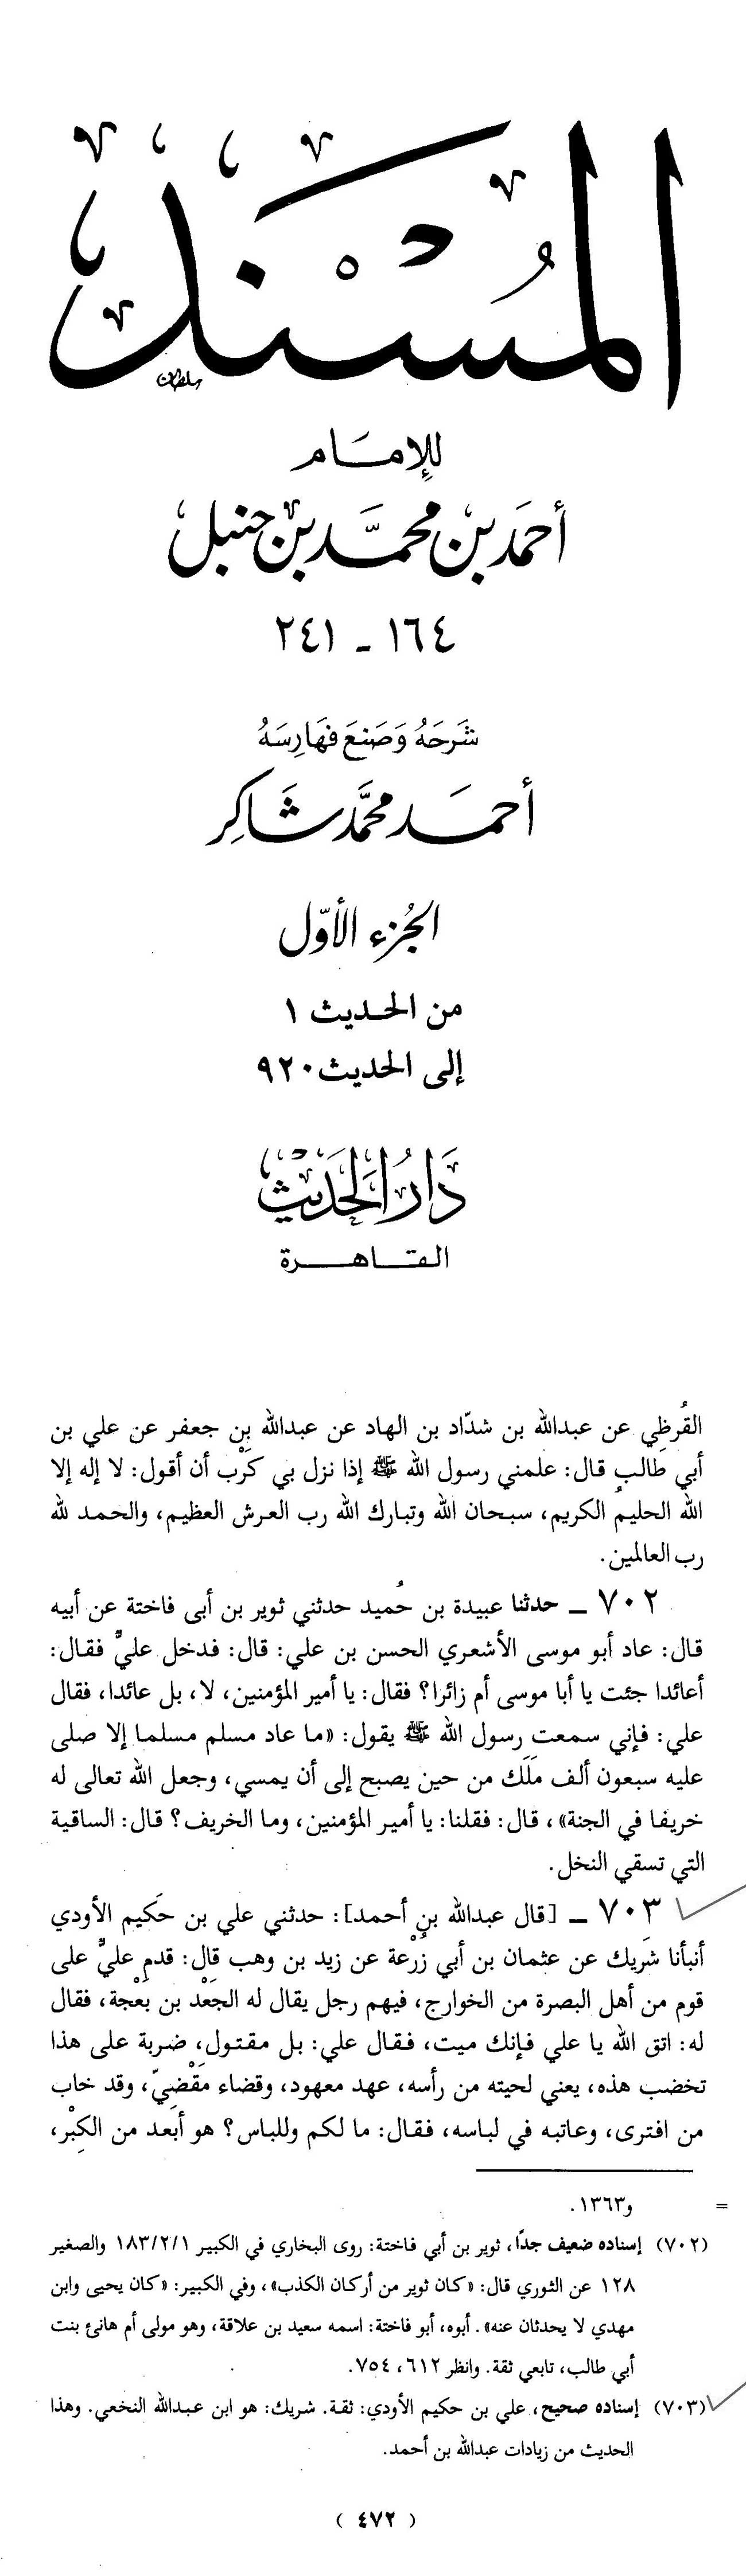 المُسْنَد
سلطان
للإمَام
أحمَد بن محمَّد بن حنبل
١٦٤ ـ ٢٤١
شَرَحَهُ وَصَنعَ فهَارِسَهُ
أحمَد محمَّد شَاكِر
الجُزء الأوّل
من الحديث ١
إلى الحديث ٩٢٠
دَارُ الحَديْث
القاهرة
القُرظِي عن عبدالله بن شدّاد بن الهاد عن عبدالله بن جعفر عن علي بن
أبي طالب قال: علمني رسول الله ﷺ إذا نزل بي كَرْب أن أقول: لا إله إلا
الله الحليمُ الكريم، سبحان الله وتبارك الله رب العرش العظيم، والحمد لله
رب العالمين.
٧٠٢ ـ حدثنا عبيدة بن حُميد حدثني ثوير بن أبى فاختة عن أبيه
قال: عاد أبو موسى الأشعري الحسن بن علي: قال: فدخل عليٌّ فقال:
أعائدا جئت يا أبا موسى أم زائرا؟ فقال: يا أمير المؤمنين، لا، بل عائدا، فقال
علي: فإني سمعت رسول الله ﷺ يقول: «ما عاد مسلم مسلما إلا صلى
عليه سبعون ألف مَلَك من حين يصبح إلى أن يمسي، وجعل الله تعالى له
خريفا في الجنة»، قال: فقلنا: يا أمير المؤمنين، وما الخريف؟ قال: الساقية
التي تسقي النخل.
٧٠٣ ـ [قال عبدالله بن أحمد]: حدثني علي بن حَكيم الأودي
أنبأنا شَريك عن عثمان بن أبي زُرْعة عن زيد بن وهب قال: قدم عليٌّ على
قوم من أهل البصرة من الخوارج، فيهم رجل يقال له الجَعْد بن بَعْجة، فقال
له: اتق الله يا علي فإنك ميت، فقال علي: بل مقتول، ضربة على هذا
تخضب هذه، يعني لحيته من رأسه، عهد معهود، وقضاء مَقْضِيّ، وقد خاب
من افترى، وعاتبه في لباسه، فقال: ما لكم وللباس؟ هو أبعد من الكِبْر،
= و١٣٦٣.
(٧٠٢) إسناده ضعيف جدًا، ثوير بن أبي فاختة: روى البخاري في الكبير ١٨٣/٢/١ والصغير
١٢٨ عن الثوري قال: «كان ثوير من أركان الكذب»، وفي الكبير: «كان يحيى وابن
مهدي لا يحدثان عنه». أبوه، أبو فاختة: اسمه سعيد بن علاقة، وهو مولى أم هانئ بنت
أبي طالب، تابعي ثقة. وانظر ٦١٢، ٧٥٤.
(٧٠٣) إسناده صحيح، علي بن حكيم الأودي: ثقة. شريك: هو ابن عبدالله النخعي. وهذا
الحديث من زيادات عبدالله بن أحمد.
( ٤٧٢ )